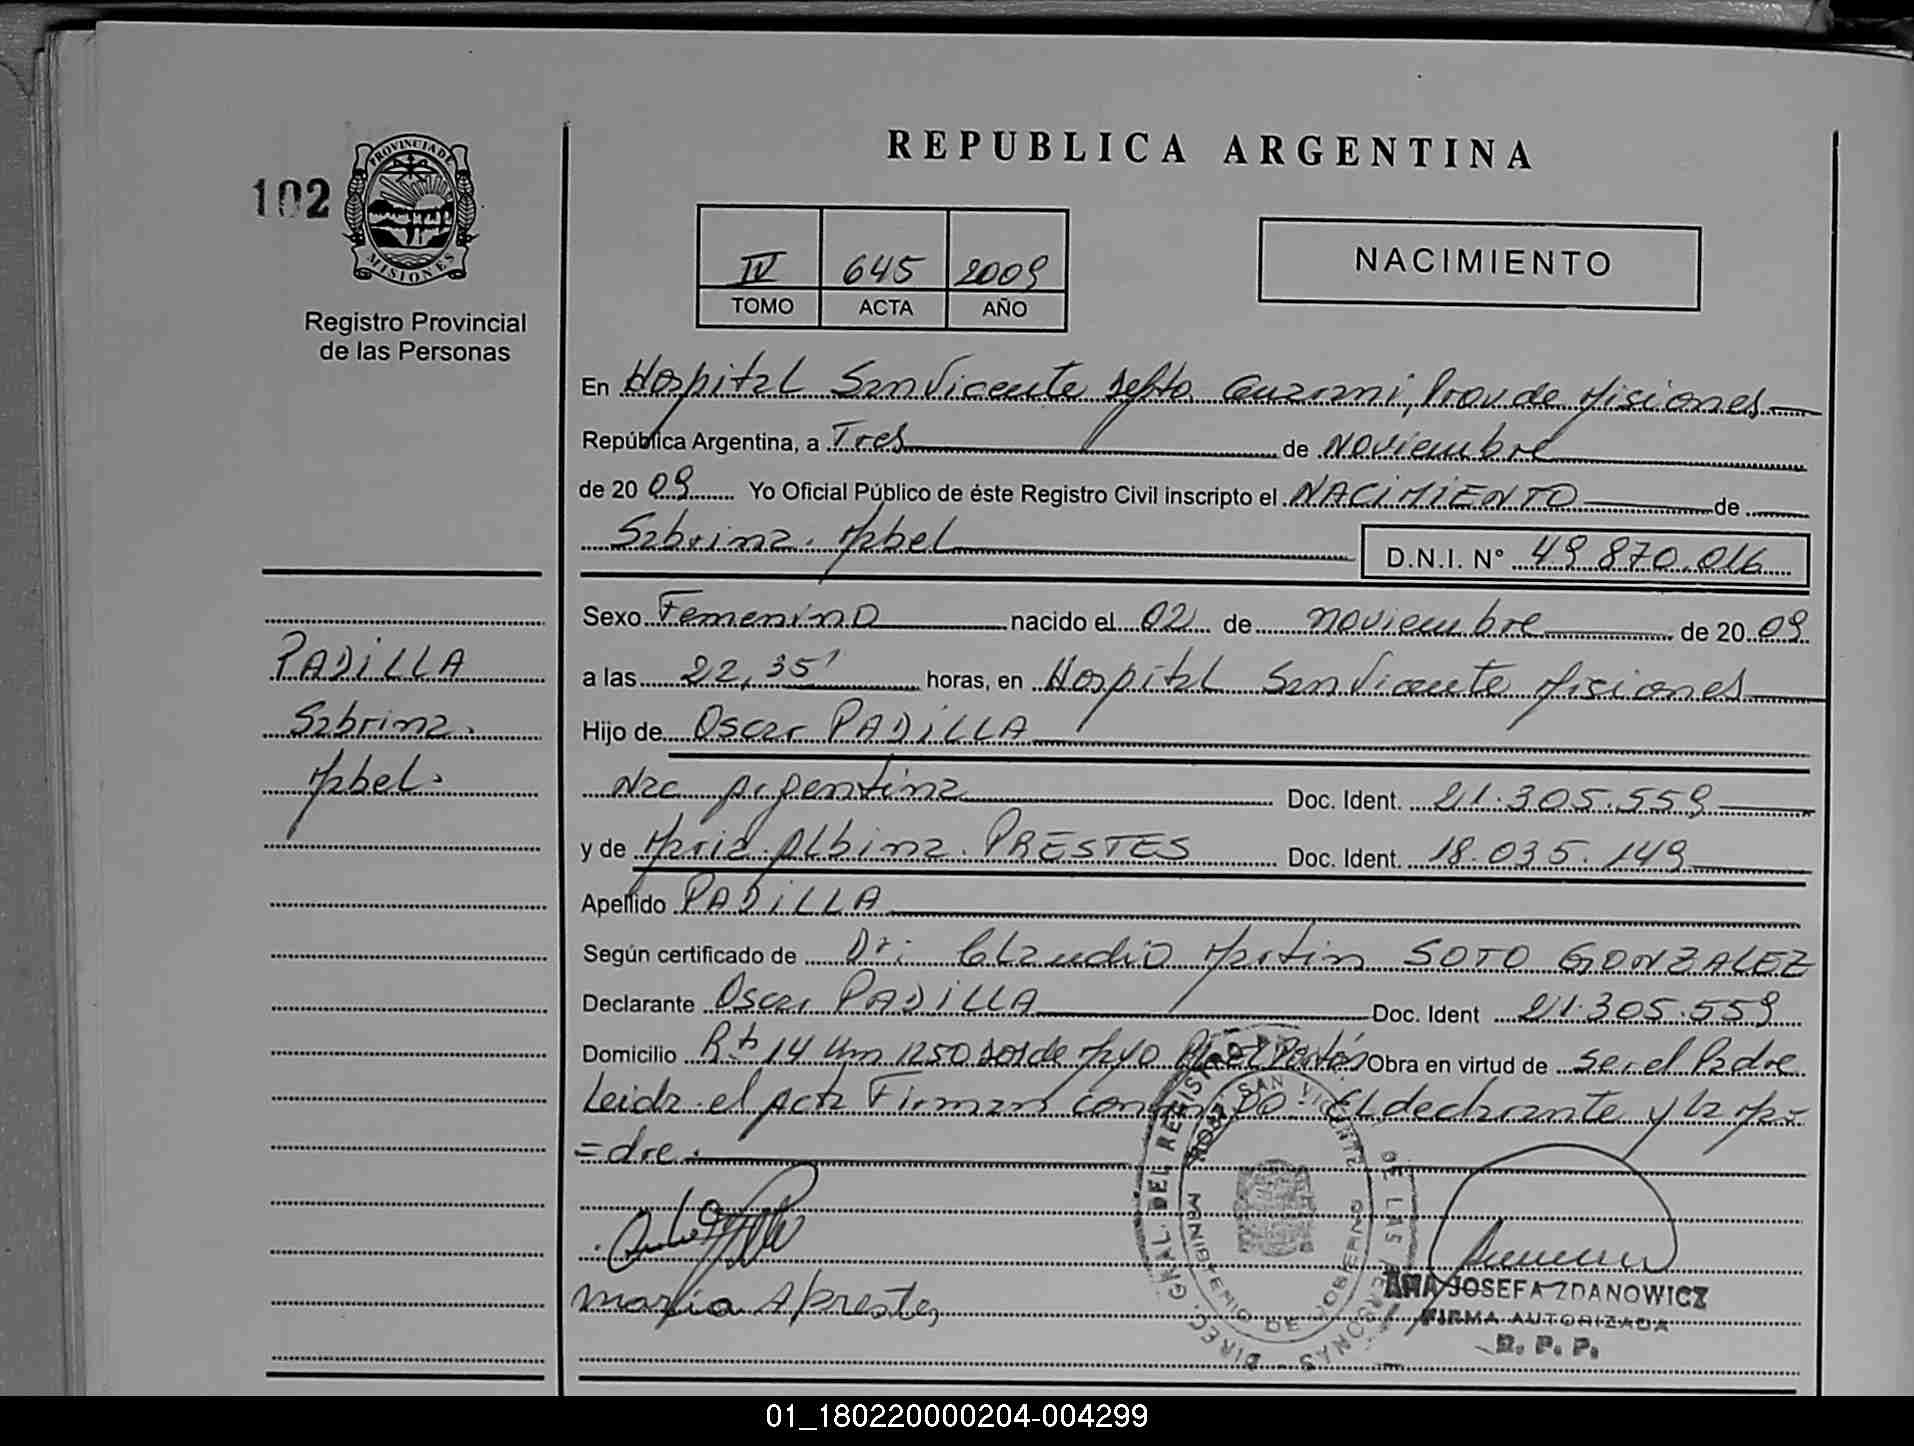 REPUBLICA ARGENTINA
102
PROVINCIA DE
MISIONES
Registro Provincial
de las Personas
IV 645 2009
TOMO ACTA AÑO
NACIMIENTO
En Hospital San Vicente Depto Guarani, Prov de Misiones
República Argentina, a Tres de Noviembre
de 20 09 Yo Oficial Público de éste Registro Civil inscripto el NACIMIENTO de
Sabrina Mabel D.N.I. N° 49 870.016
Sexo Femenino nacido el 02 de noviembre de 20 09
PADILLA
Sabrina
Mabel
a las 22,35' horas, en Hospital San Vicente Misiones
Hijo de Oscar PADILLA
Nac Argentina Doc. Ident. 21.305.559
y de Maria Albina PRESTES Doc. Ident. 18.035.149
Apellido PADILLA
Según certificado de Dr: Claudio Martin SOTO GONZALEZ
Declarante Oscar PADILLA Doc. Ident 21.305.559
Domicilio Rta 14 Km 1250 Dos de Mayo Obra en virtud de ser el Padre
Leida el Acta Firman conmigo El declarante y la Ma=
=dre.
Maria A Prestes
DIREC. GRAL. DEL REGISTRO DE LAS PERSONAS
SAN VICENTE
MINISTERIO DE GOBIERNO
ANA JOSEFA ZDANOWICZ
FIRMA AUTORIZADA
R. P. P.
01_180220000204-004299